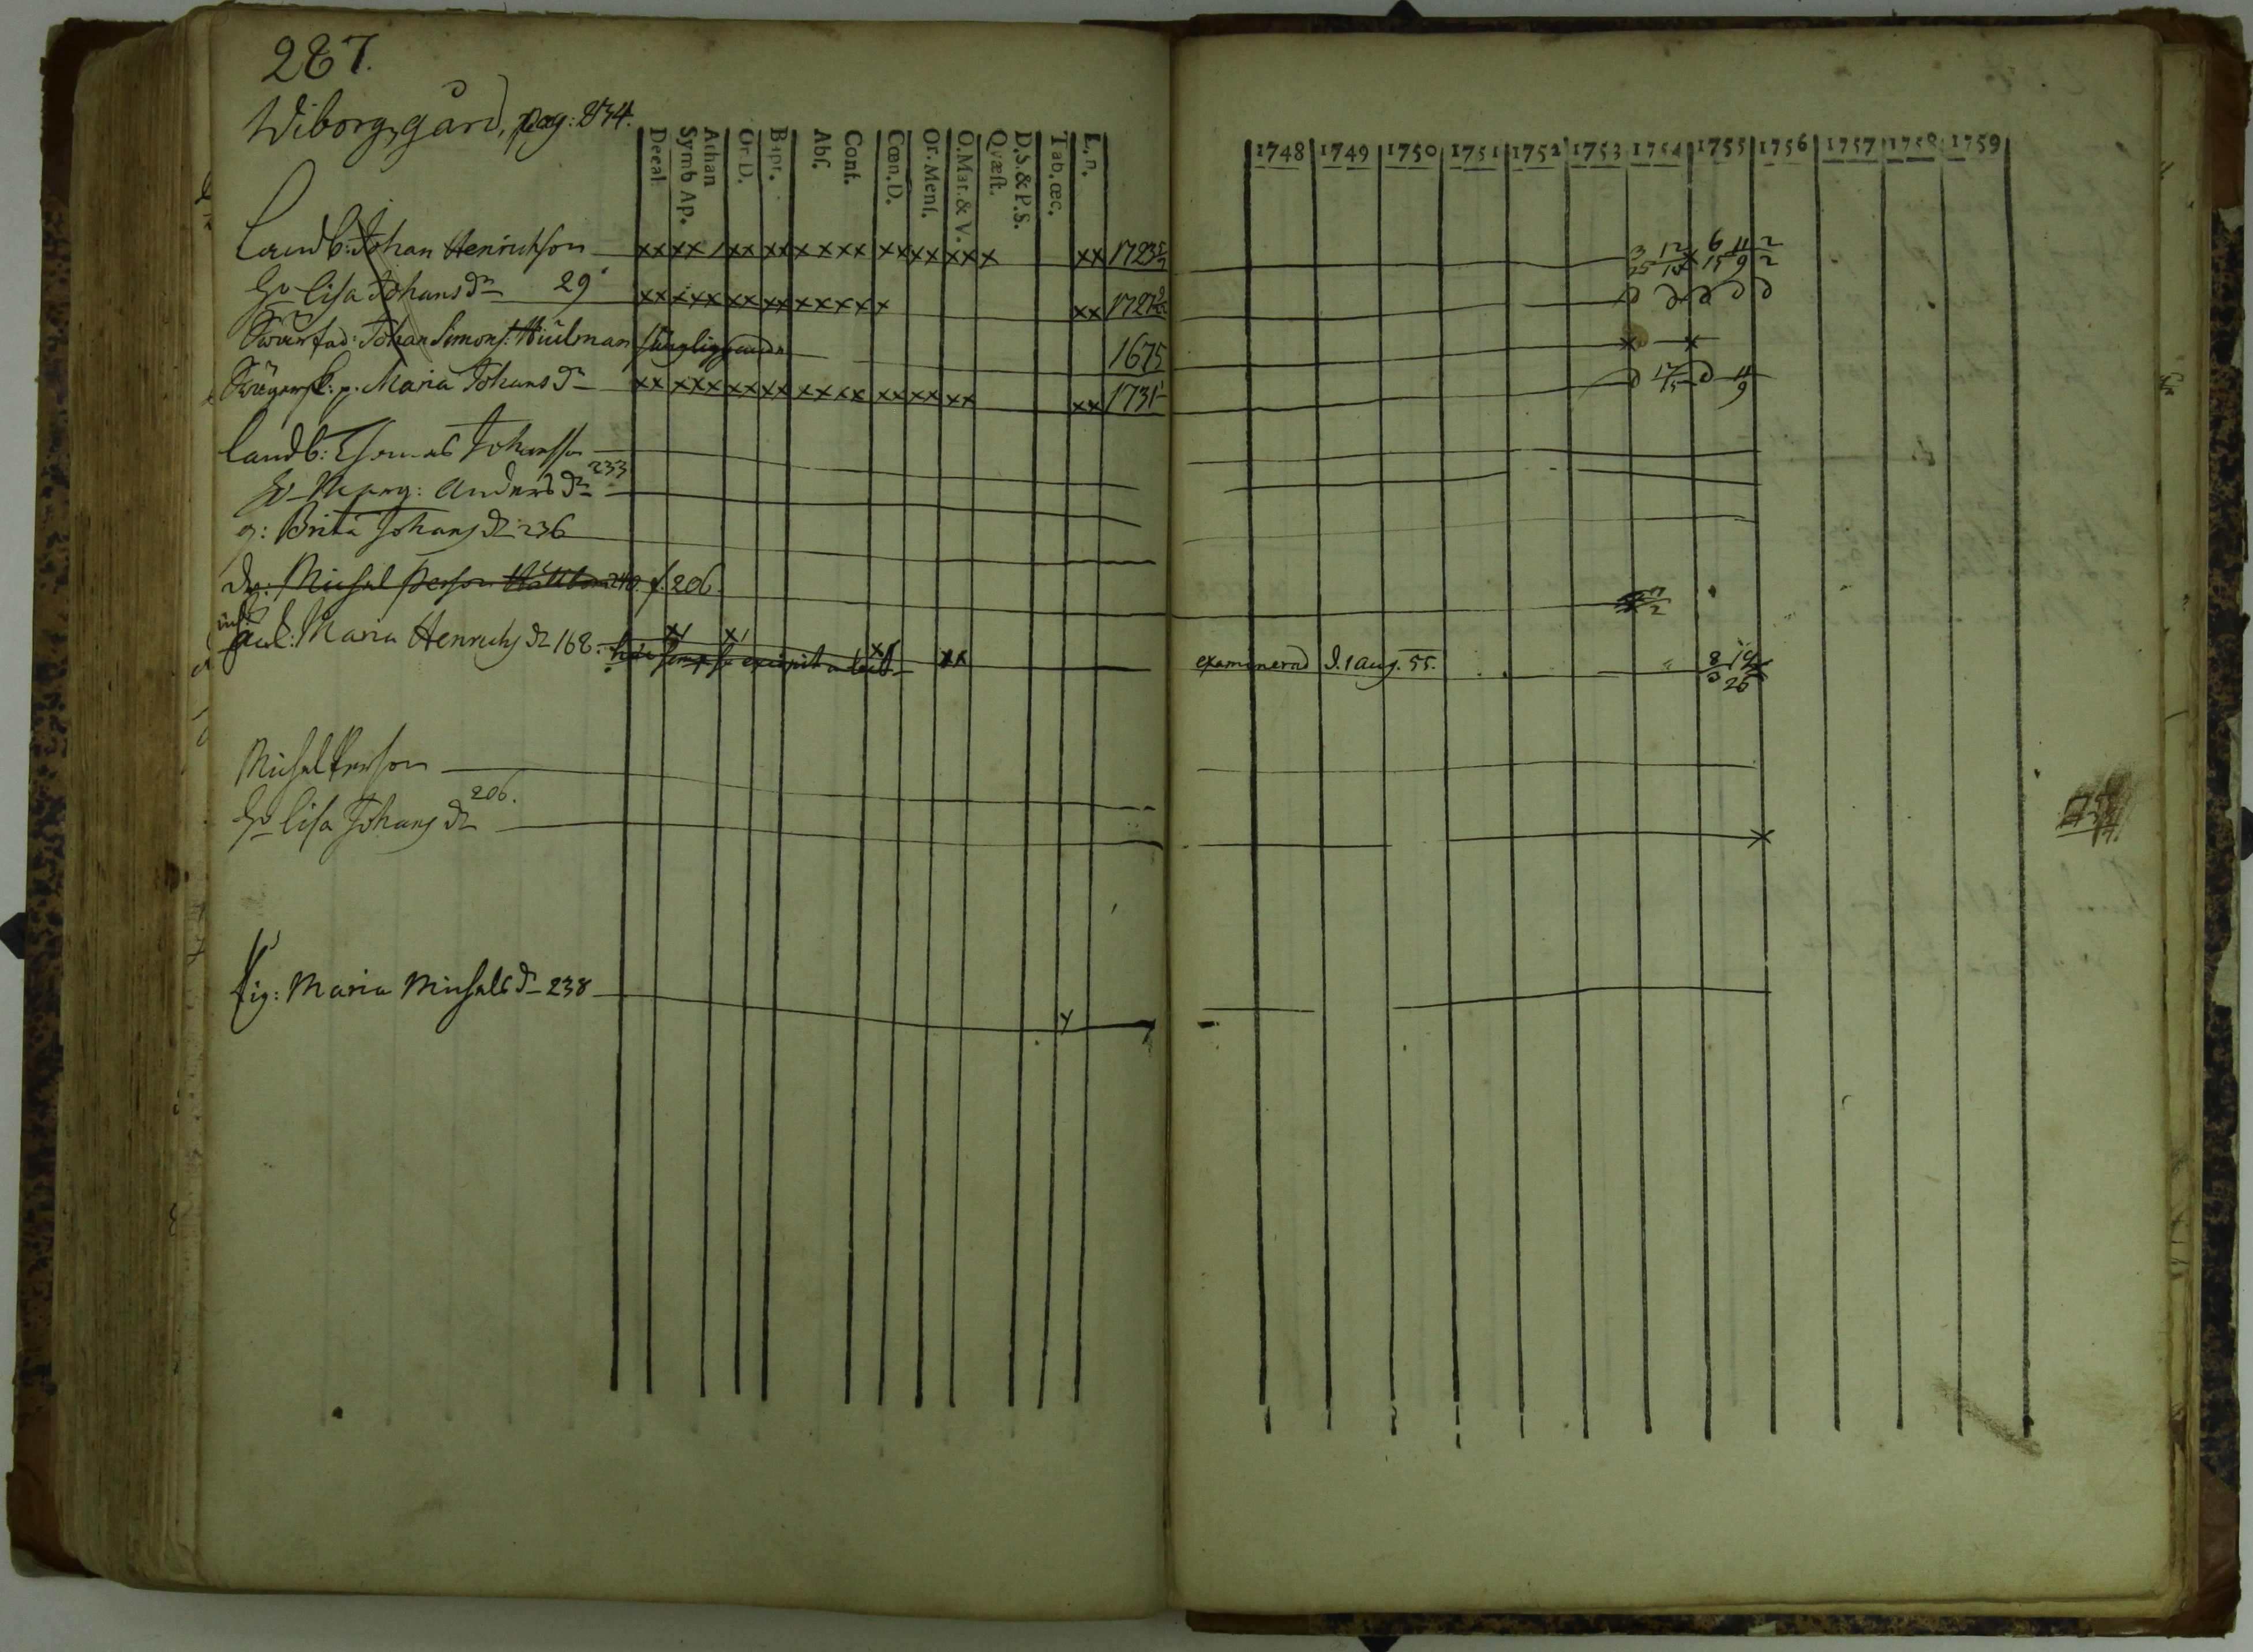 287.
Wiborg gård, pag: 234.
Decal. Symb Ap. Athan Or. D. Bapt. Abſ. Conf. Cœn. D. Or. Menſ. O. Mar. & V. Qvæſt. D. S. & P. S. Tab. œc. L. n.
1748 1749 1750 1751 1752 1753 1754 1755 1756 1757 1758 1759
Landb: Johan Henrichson xx xx / xx xx xx xx xx xx xx x xx 1723 3/25 12/18 x 6/15 11/9 2/2
Hu Lisa Johans dr 29 xx xxx xx xx xx xx x xx 1727 D D D D D
Swärfad: Johan Simons. sängliggande 1675 x x
p. Maria Johans dr xx xxx xx xx xx xx xx xx xx xx 1731 D 17/15 D 11/9
Landb: Thomas Johansson
Hu Marg: Anders dr 233
p: Brita Johans dr 236
Dr: Michel Person 240. f. 206
inh:
Maria Henrichs dr 168. x/ x/ xx xx examinerad d. 1 aug. 55. 8 19 26
Michel Person
Hu Lisa Johans dr 206. x
Pig: Maria Michels dr 238 x